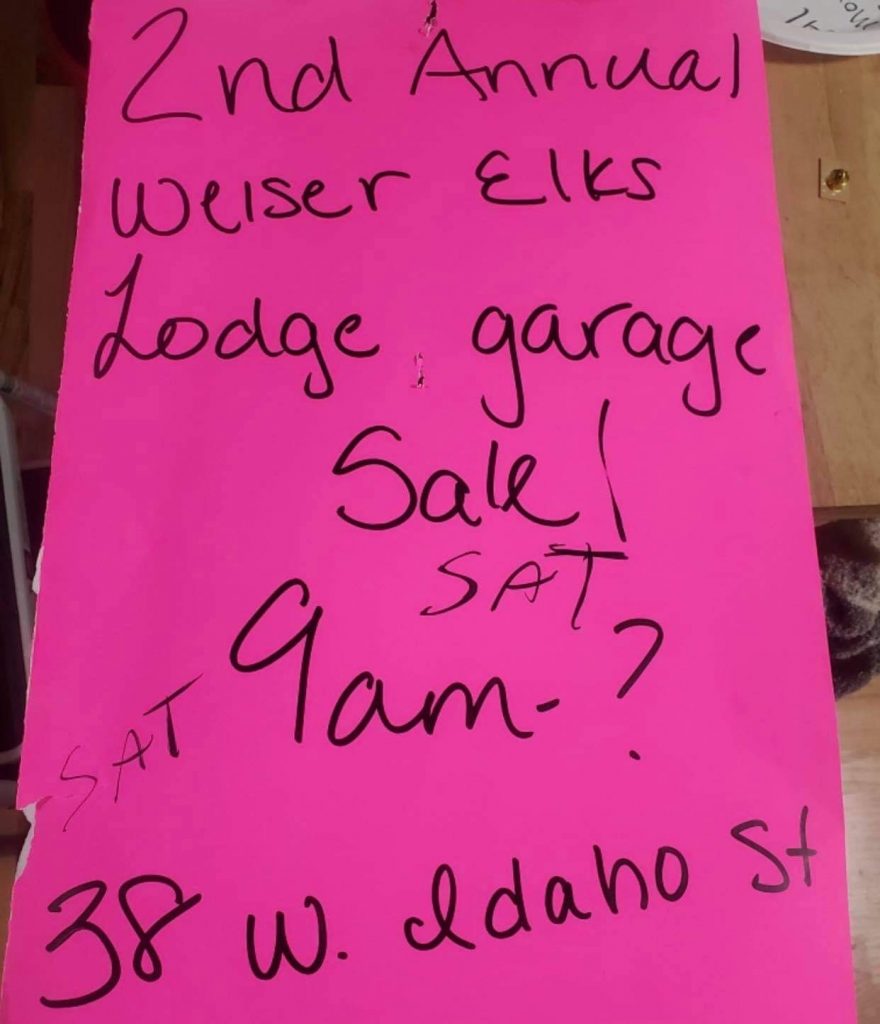 2nd Annual
Weiser Elks
Lodge garage
Sale!
SAT
9am-?
SAT
38 W. Idaho St